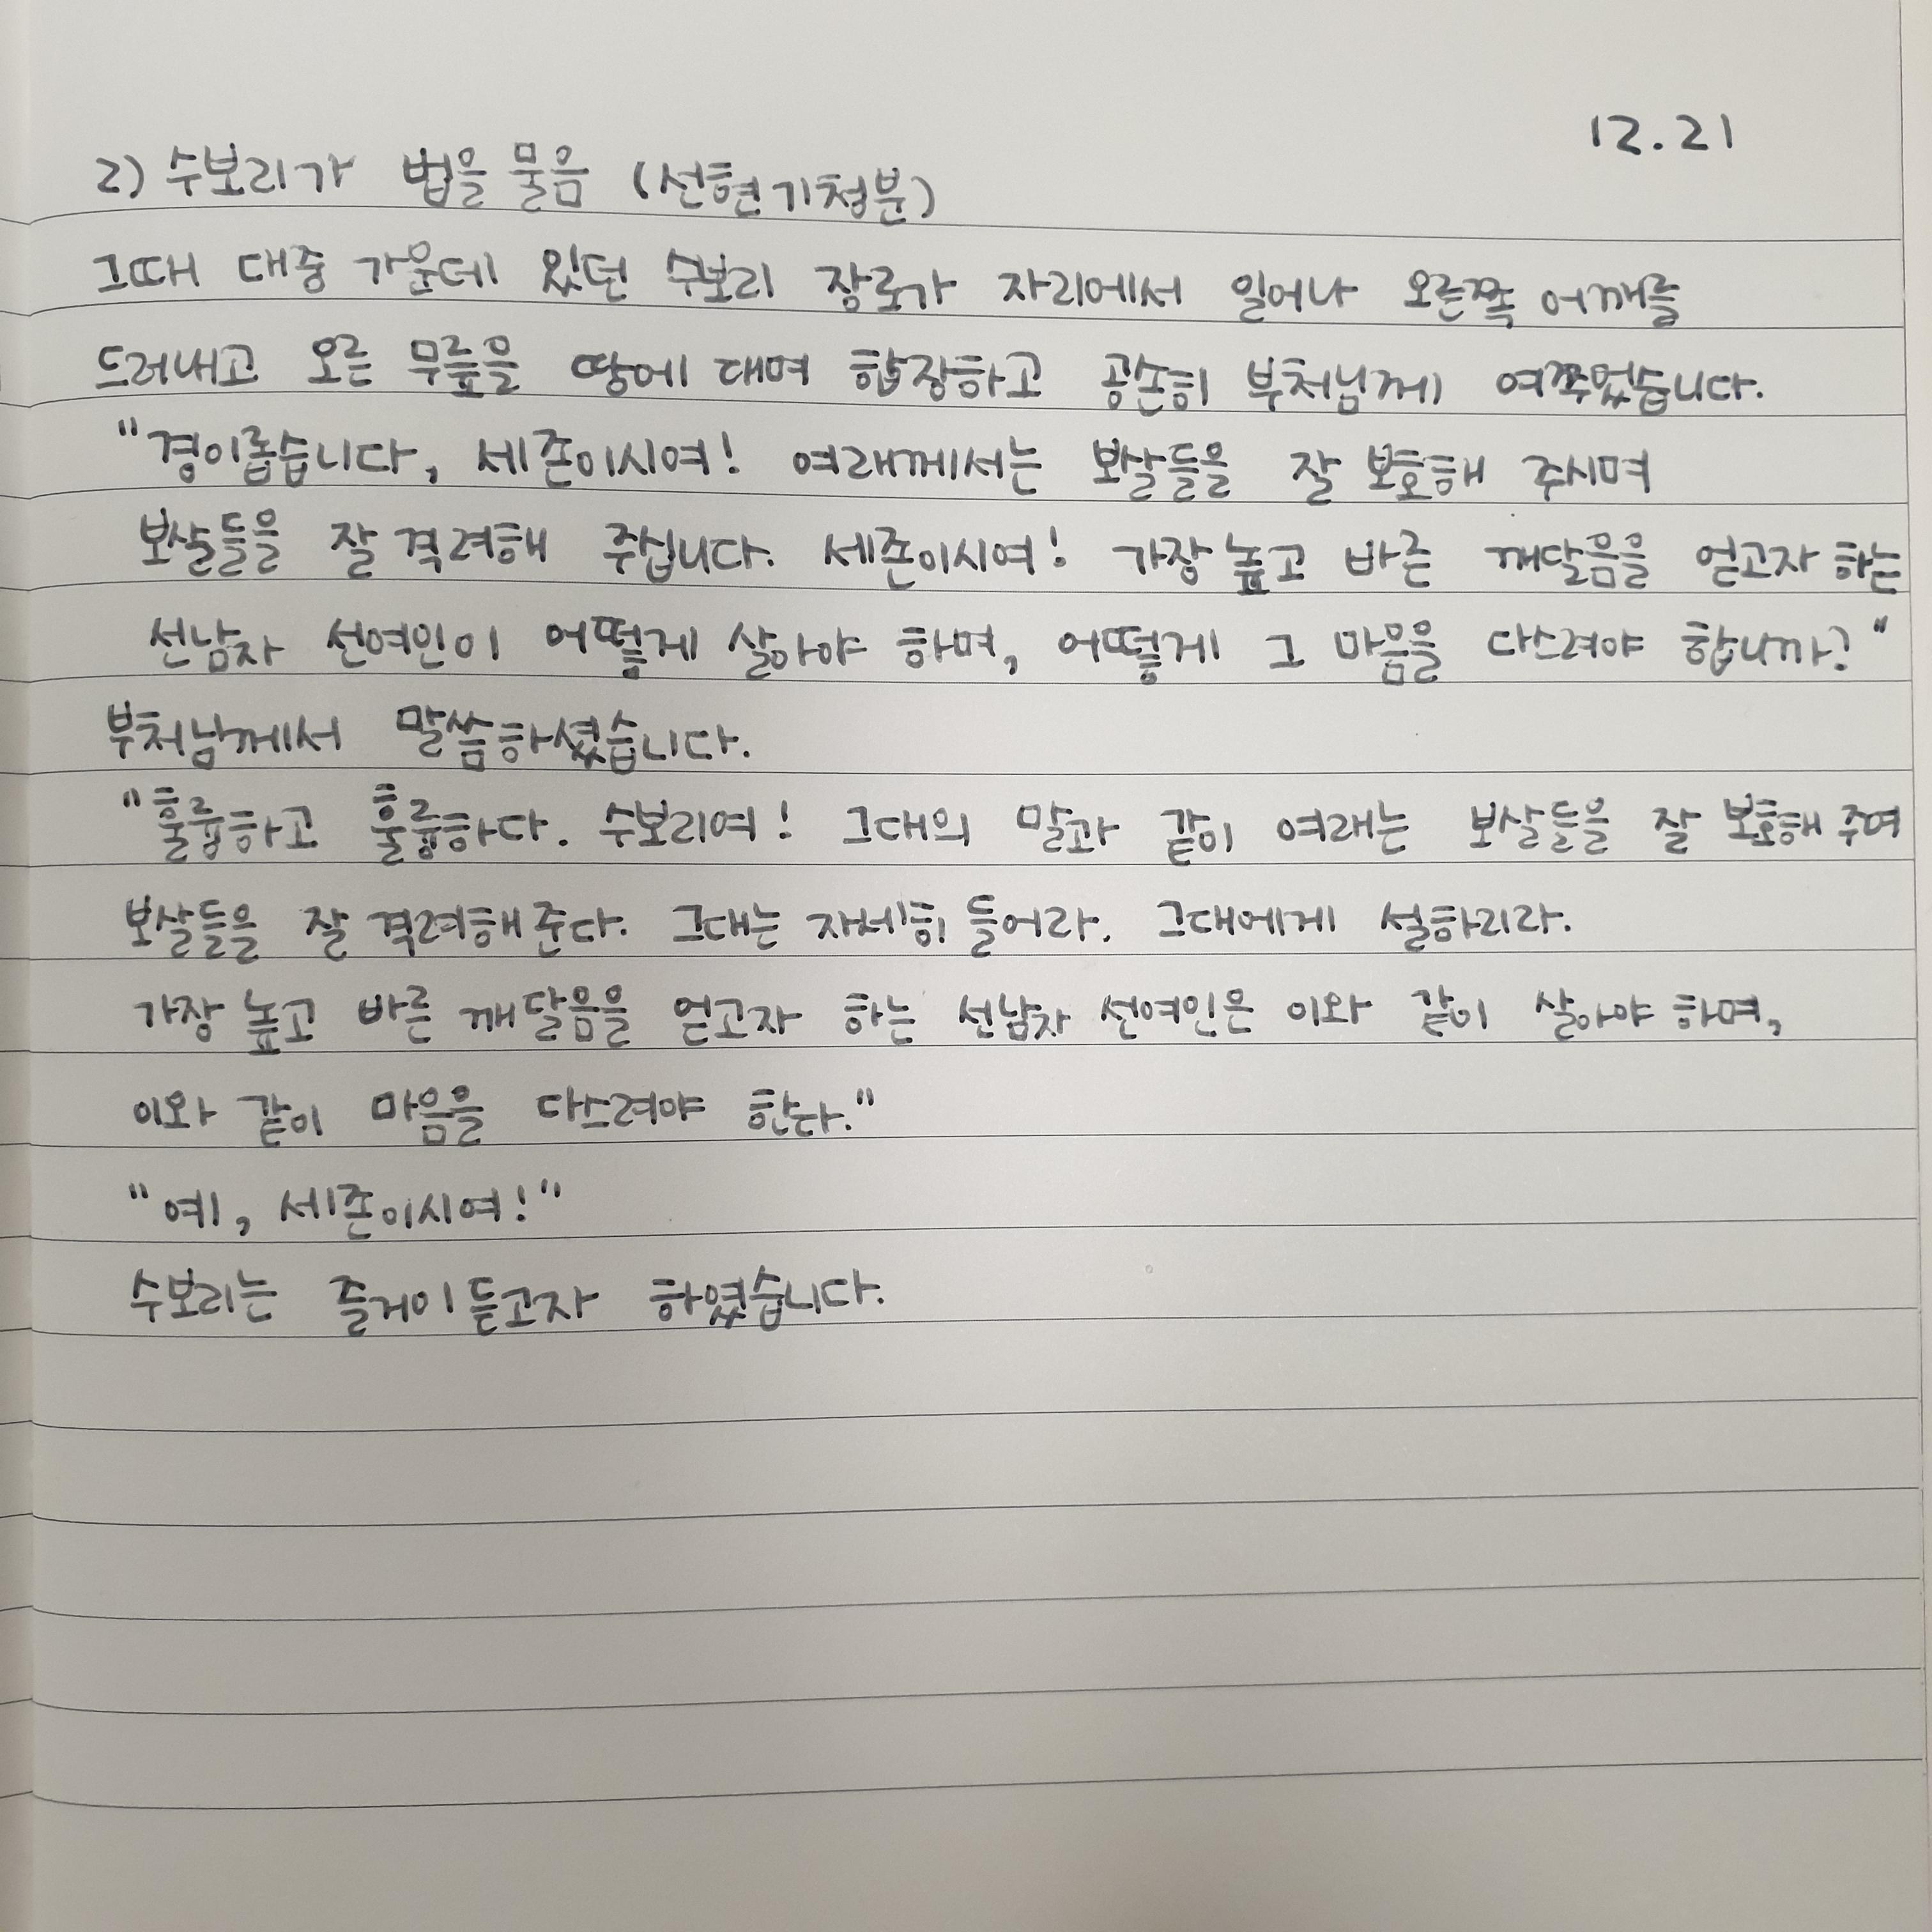 12.21
2) 수보리가 법을 물음 (선현기청분)
그때 대중 가운데 있던 수보리 장로가 자리에서 일어나 오른쪽 어깨를
드러내고 오른 무릎을 땅에 대며 합장하고 공손히 부처님께 여쭈었습니다.
"경이롭습니다, 세존이시여! 여래께서는 보살들을 잘 보호해 주시며
보살들을 잘 격려해 주십니다. 세존이시여! 가장 높고 바른 깨달음을 얻고자 하는
선남자 선여인이 어떻게 살아야 하며, 어떻게 그 마음을 다스려야 합니까?"
부처님께서 말씀하셨습니다.
"훌륭하고 훌륭하다. 수보리여! 그대의 말과 같이 여래는 보살들을 잘 보호해 주며
보살들을 잘 격려해 준다. 그대는 자세히 들어라. 그대에게 설하리라.
가장 높고 바른 깨달음을 얻고자 하는 선남자 선여인은 이와 같이 살아야 하며,
이와 같이 마음을 다스려야 한다."
"예, 세존이시여!"
수보리는 즐거이 듣고자 하였습니다.